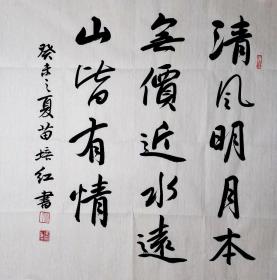 清风明月本
無價近水遠
山皆有情
癸未之夏苗培红書